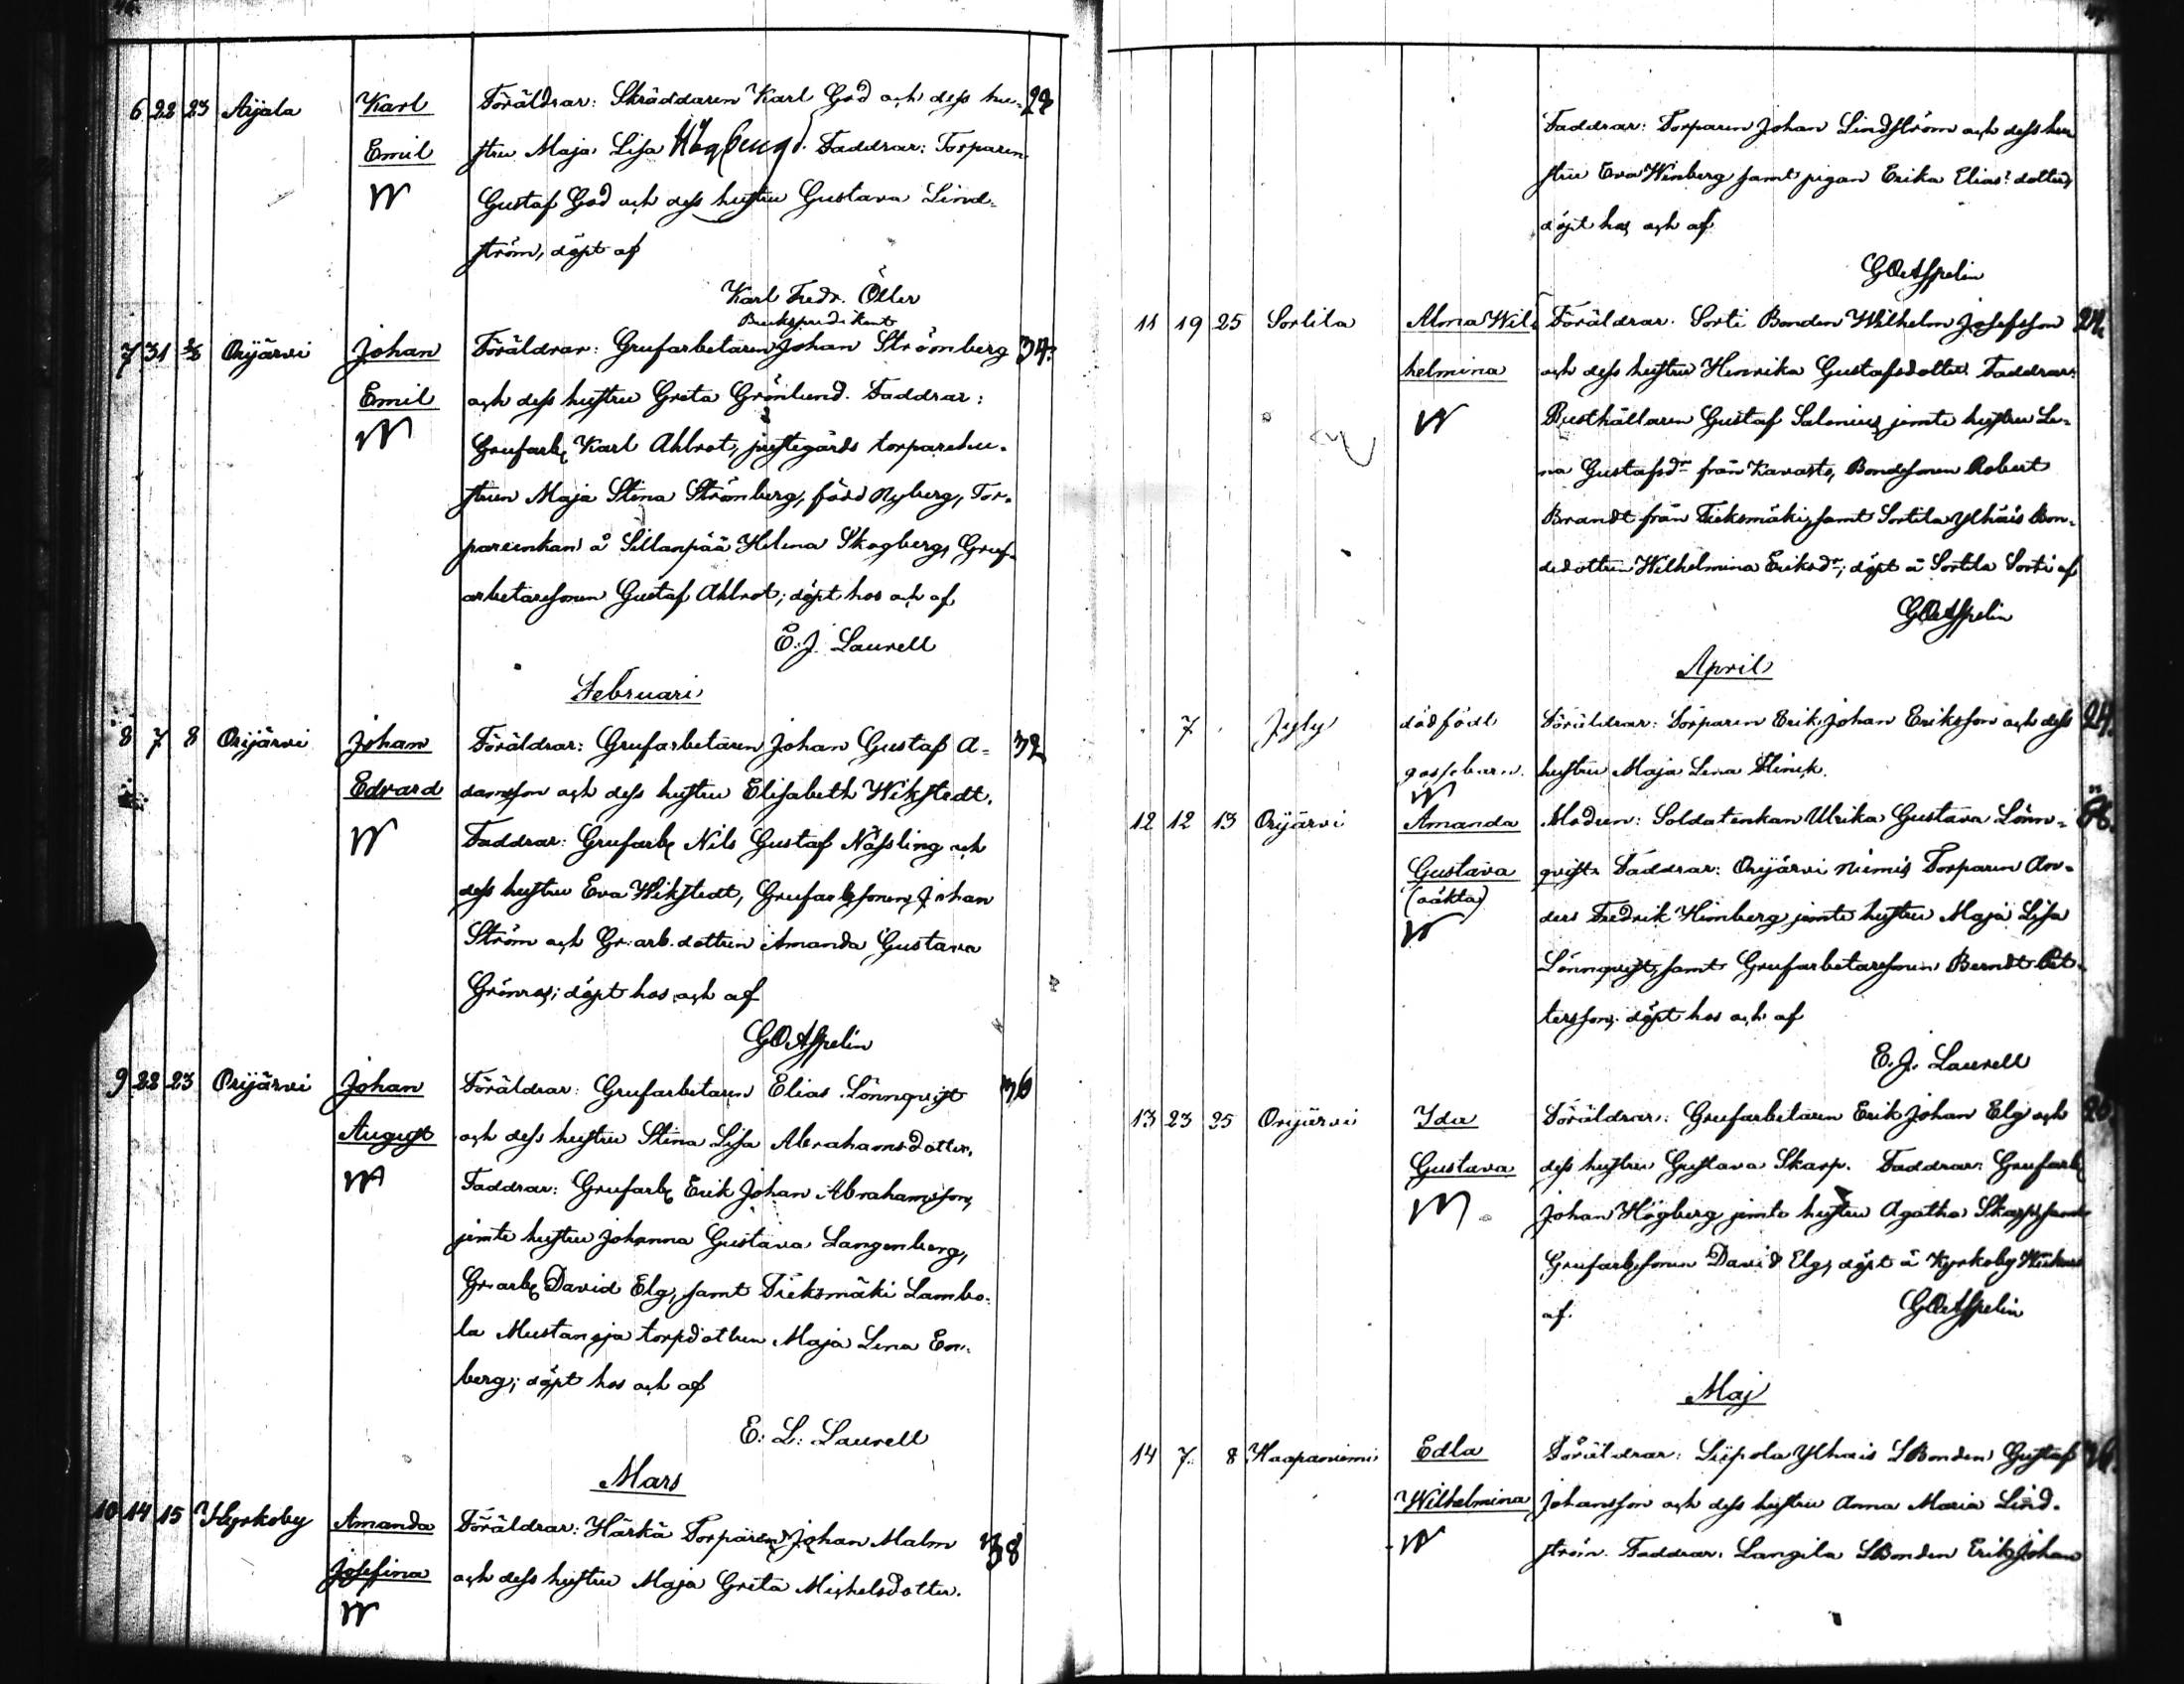 6 22 23 Aijala Karl Föräldrar: Skräddaren Karl God och dess hu- 29
Emil stru Maja Lisa Högberg. Faddrar: Torparen
Gustaf God och dess hustru Gustava Lind-
ström, döpt af
Karl Fredr. Öller
Brukspredikant
7 31 2/2 Orijärvi Johan Föräldrar: Grufarbetaren Johan Strömberg 34.
Emil och dess hustru Greta Grönlund. Faddrar:
Grufarb. Karl Ahlrot, prestegårds torparehu-
strun Maja Stina Strömberg, född Nyberg, Tor-
pareenkan å Sillanpää Helena Skogberg, Gruf-
arbetaresonen Gustaf Ahlrot; döpt hos och af
E. J. Laurell
Februari
8 7 8 Orijärvi Johan Föräldrar: Grufarbetaren Johan Gustaf A- 32
Edvard damsson och dess hustru Elisabeth Wikstedt.
Faddrar: Grufarb. Nils Gustaf Nässling och
dess hustru Eva Wikstedt, Grufarb.sonen Johan
Ström och Gr: arb. dottren Amanda Gustava
Grönros; döpt hos och af
GOAspelin
9 22 23 Orijärvi Johan Föräldrar: Grufarbetaren Elias Lönnqvist 36
August och dess hustru Stina Lisa Abrahamsdotter.
Faddrar: Grufarb. Erik Johan Abrahamsson,
jemte hustru Johanna Gustava Langenberg,
Gr: arb. David Elg, samt Fieksmäki Lambo-
la Mustanoja torpdottren Maja Lena En-
berg; döpt hos och af
E: L: Laurell
Mars
10 14 15 Kyrkoby Amanda Föräldrar: Härkä Torparen Johan Malm 38
Josefina och dess hustru Maja Greta Michelsdotter.
Faddrar: Torparen Johan Lindström och dess hu
stru Eva Winberg samt pigan Erika Elias dotter,
döpt hos och af
GOAspelin
11 19 25 Sortila Alma Wil- Föräldrar. Sorti Bonden Wilhelm Josefsson 24.
helmina och dess hustru Henrika Gustafsdotter. Faddrar:
Rusthållaren Gustaf Salonius jemte hustru Le-
na Gustafsdr från Kavasto, Bondesonen Robert
Brandt från Fieksmäki, samt Sortila Ylhäis Bon-
dedottren Wilhelmina Eriksdr; döpt å Sortila Sorti af
GOAspelin
April
7 Jyly dödfödt Föräldrar: Torparen Erik Johan Eriksson och dess 24.
gossebarn. hustru Maja Lena Flinck.
12 12 13 Orijärvi Amanda Modren: Soldatenkan Ulrika Gustava Lönn-
Gustava qvist. Faddrar: Orijärvi Niemis Torparen An-
(oäkta) ders Fredrik Himberg jemte hustru Maja Lisa
Lönnqvist, samt Grufarbetaresonen Berndt Pet-
tersson; döpt hos och af
E. J. Laurell
13 23 25 Orijärvi Ida Föräldrar: Grufarbetaren Erik Johan Elg och
Gustava dess hustru Gustava Skarp. Faddrar: Grufarb.
Johan Högberg jemte hustru Agatha Skarp, samt
Grufarb.sonen David Elg, döpt å Kyrkoby
af. GOAspelin
Maj
14 7 8 Haapaniemi Edla Föräldrar: Liipola Ylhäis LBonden Gustaf
Wilhelmina Johansson och dess hustru Anna Maria Lind-
ström. Faddrar: Langila LBonden Erik Johan